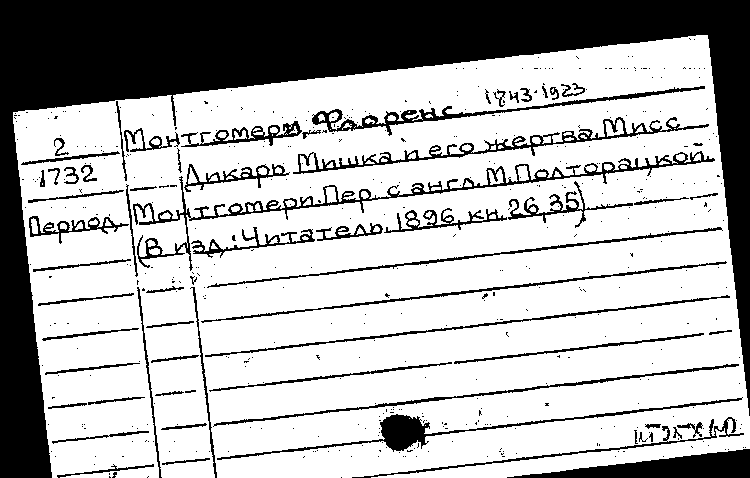 Монтгомери, Флоренс 1843-1923
2
1732
Дикарь Мишка и его жертва. Мисс
Период. Монтгомери. Пер. с англ. М. Полторацкой.
(В изд.: Читатель. 1896, кн. 26, 35)